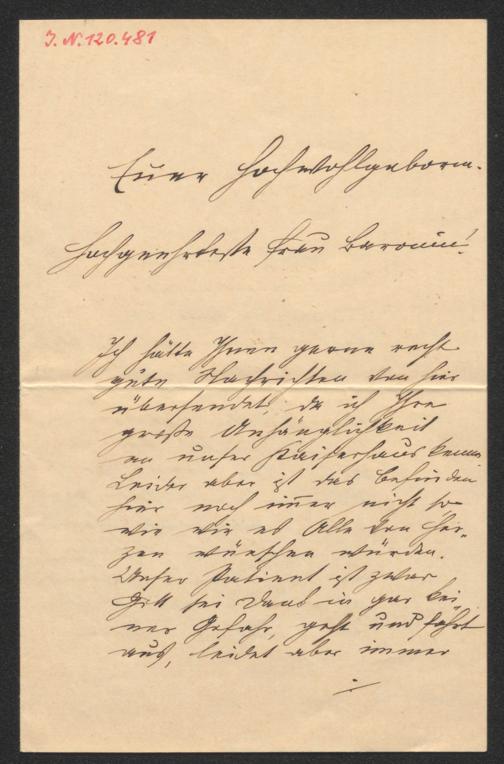 J.N. 120.481
Euer Hochwohlgeboren.
Hochgeehrteste Frau Baronin!
Ich hätte Ihnen gerne recht
gute Nachrichten von hier
übersendet, da ich Ihre
große Anhänglichkeit
an unser Kaiserhaus kenne
Leider aber ist das Befinden
hier noch im̅er nicht so
wie wir es Alle von Her-
zen wünschen würden.
Unser Patient ist zwar
Gott sei Dank in gar kei-
ner Gefahr, geht und fährt
aus, leidet aber immer
./.